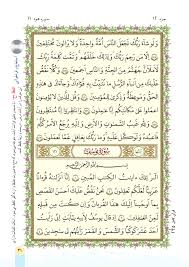 وَلَوْ شَاءَ رَبُّكَ لَجَعَلَ النَّاسَ أُمَّةً وَاحِدَةً وَلَا يَزَالُونَ مُخْتَلِفِينَ
إِلَّا مَن رَّحِمَ رَبُّكَ وَلِذَٰلِكَ خَلَقَهُمْ وَتَمَّتْ كَلِمَةُ رَبِّكَ
لَأَمْلَأَنَّ جَهَنَّمَ مِنَ الْجِنَّةِ وَالنَّاسِ أَجْمَعِينَ وَكُلًّا نَّقُصُّ
عَلَيْكَ مِنْ أَنبَاءِ الرُّسُلِ مَا نُثَبِّتُ بِهِ فُؤَادَكَ وَجَاءَكَ فِي هَٰذِهِ
الْحَقُّ وَمَوْعِظَةٌ وَذِكْرَىٰ لِلْمُؤْمِنِينَ وَقُل لِّلَّذِينَ لَا يُؤْمِنُونَ
اعْمَلُوا عَلَىٰ مَكَانَتِكُمْ إِنَّا عَامِلُونَ وَانتَظِرُوا إِنَّا مُنتَظِرُونَ
وَلِلَّهِ غَيْبُ السَّمَاوَاتِ وَالْأَرْضِ وَإِلَيْهِ يُرْجَعُ الْأَمْرُ كُلُّهُ
فَاعْبُدْهُ وَتَوَكَّلْ عَلَيْهِ وَمَا رَبُّكَ بِغَافِلٍ عَمَّا تَعْمَلُونَ
سُورَةُ يُوسُفَ
بِسْمِ اللَّهِ الرَّحْمَٰنِ الرَّحِيمِ
الر تِلْكَ آيَاتُ الْكِتَابِ الْمُبِينِ إِنَّا أَنزَلْنَاهُ قُرْآنًا
عَرَبِيًّا لَّعَلَّكُمْ تَعْقِلُونَ نَحْنُ نَقُصُّ عَلَيْكَ أَحْسَنَ الْقَصَصِ
بِمَا أَوْحَيْنَا إِلَيْكَ هَٰذَا الْقُرْآنَ وَإِن كُنتَ مِن قَبْلِهِ
لَمِنَ الْغَافِلِينَ إِذْ قَالَ يُوسُفُ لِأَبِيهِ يَا أَبَتِ إِنِّي رَأَيْتُ
أَحَدَ عَشَرَ كَوْكَبًا وَالشَّمْسَ وَالْقَمَرَ رَأَيْتُهُمْ لِي سَاجِدِينَ